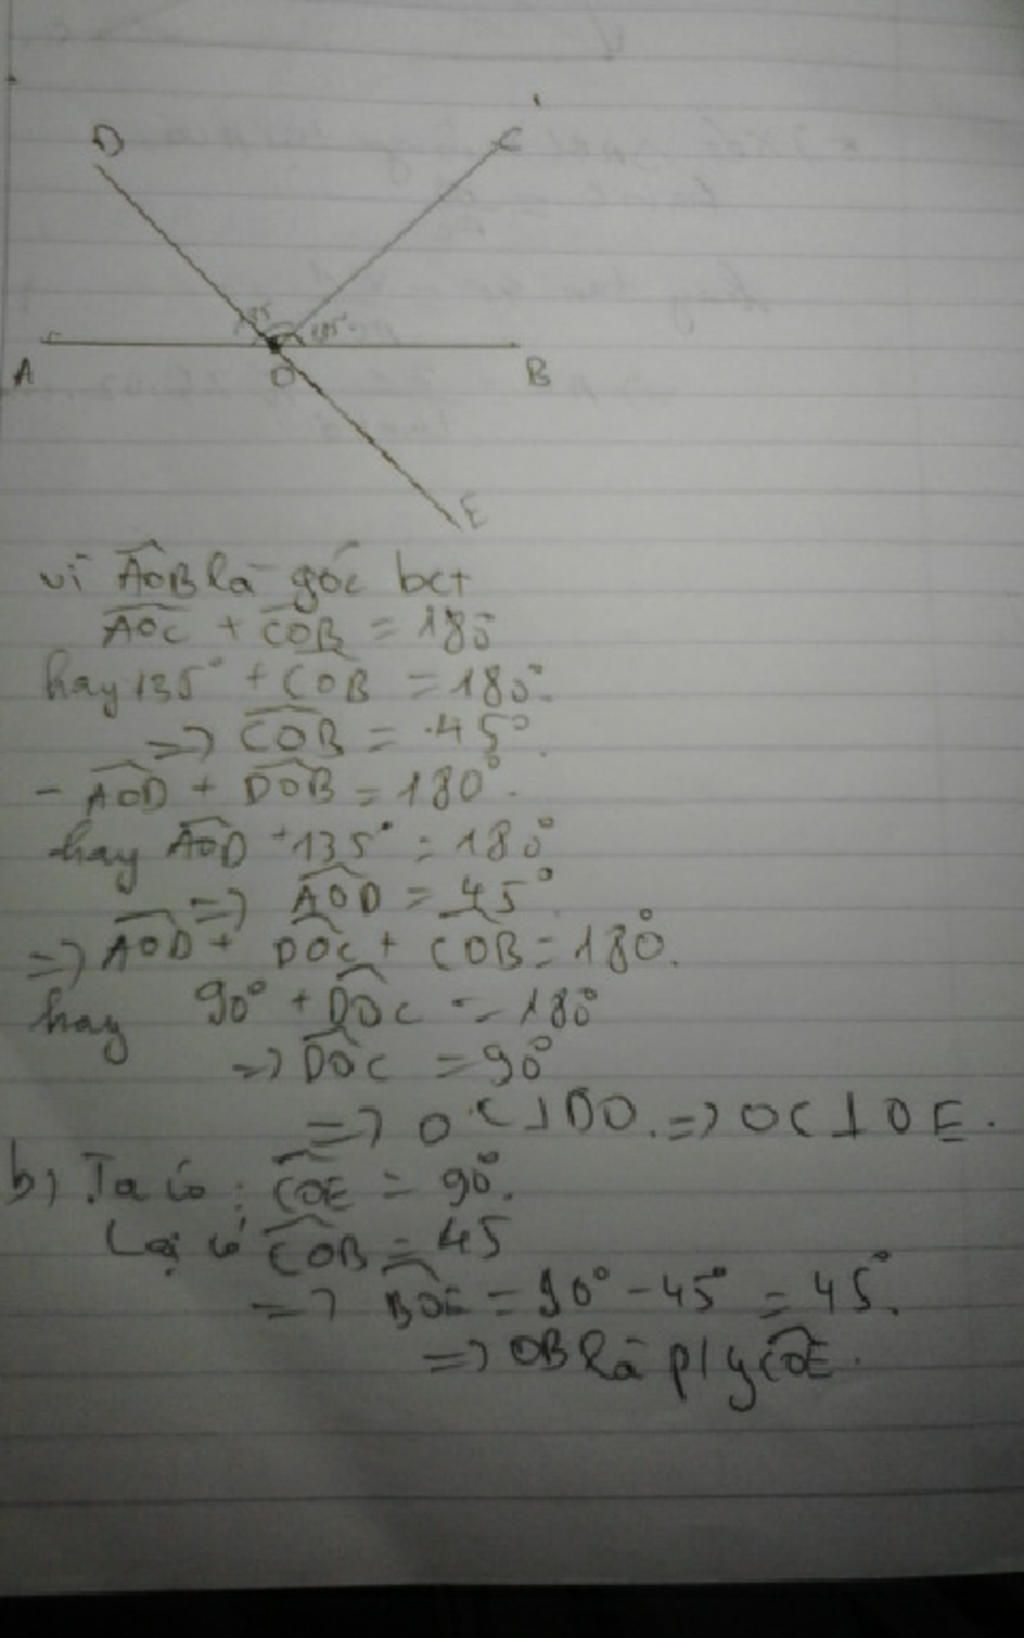 D
C
A
O
B
E
vì AOB là góc bẹt
AOC + COB = 180
hay 135° + COB = 180°.
=> COB = 45°.
- AOD + DOB = 180°.
hay AOD + 135° = 180°
=> AOD = 45°.
=> AOD + DOC + COB = 180°.
hay 90° + DOC = 180°
=> DOC = 90°
=> OC ⊥ DO. => OC ⊥ OE.
b) Ta có: COE = 90°.
Lại có COB = 45
=> BOE = 90° - 45° = 45°.
=> OB là p/g COE.